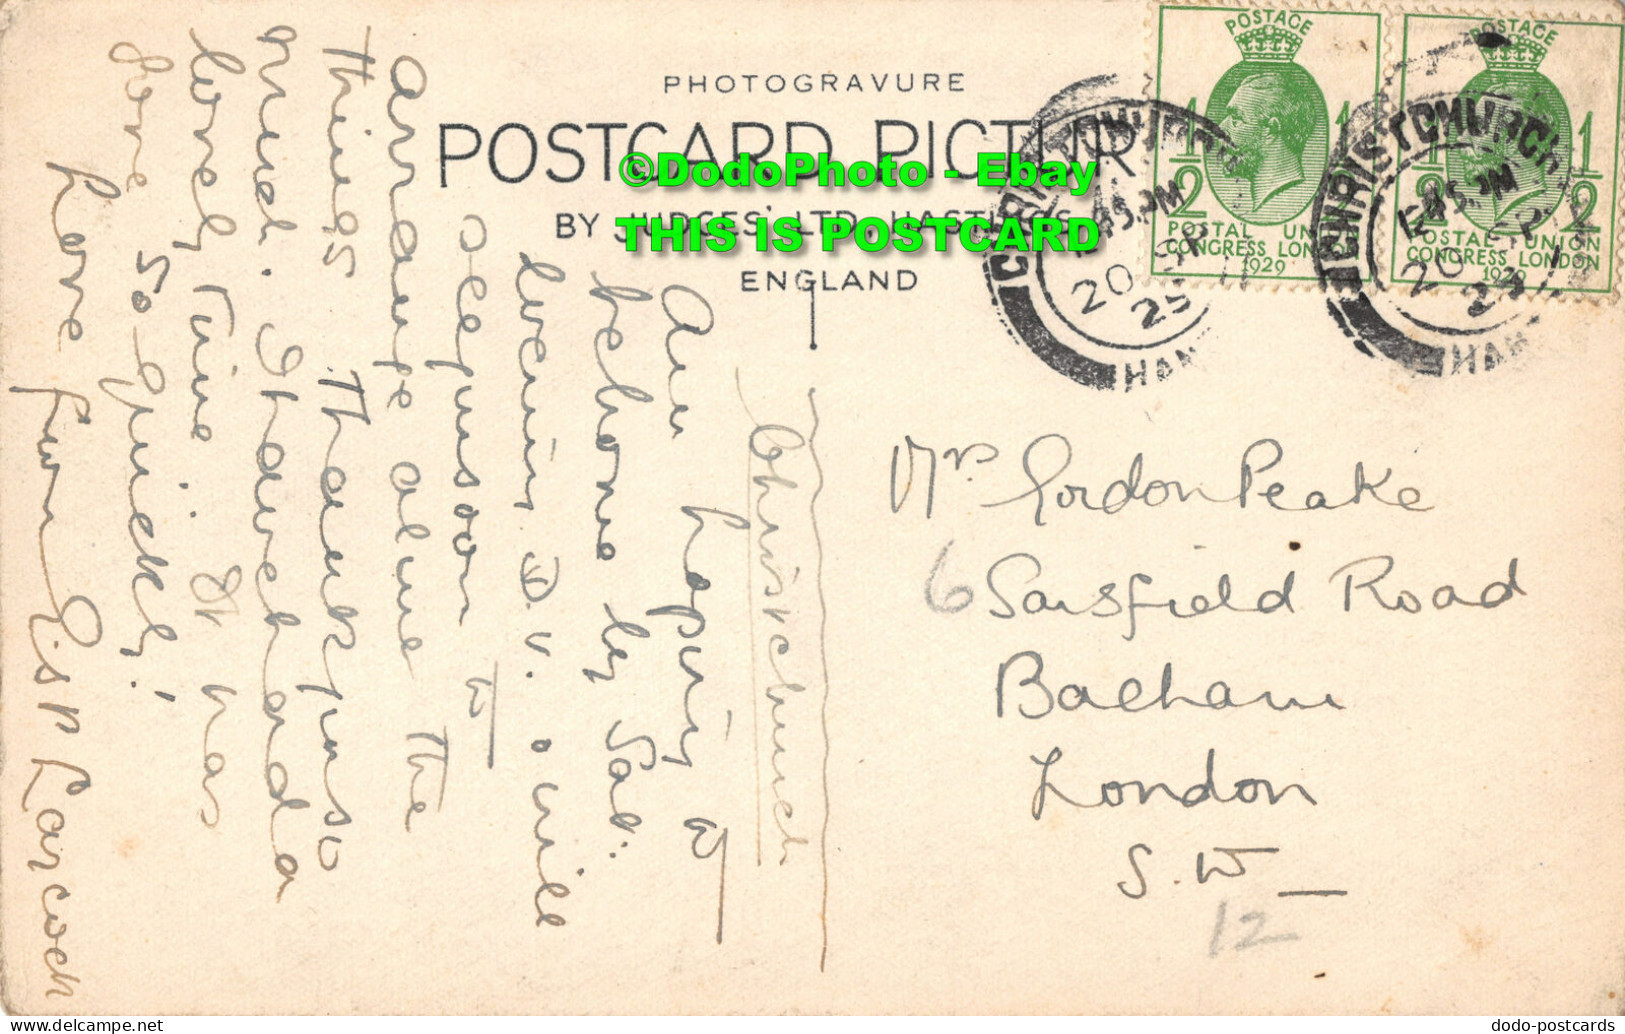 PHOTOGRAVURE
POSTCARD PICTUR
BY JUDGES' LTD., HASTINGS
ENGLAND
©DodoPhoto - Ebay
THIS IS POSTCARD
POSTAGE
1/2 1/2
POSTAL UN
CONGRESS LONDON
1929
POSTAGE
1/2 1/2
POSTAL UNION
CONGRESS LONDON
1929
CHRISTCHURCH
12.45.PM
20 SP
29
HAN
CHRISTCHURCH
12.45.PM
20 SP
29
HAN
Christchurch
Am hoping to
be home by Sat:
evening D.V. & will
see you soon to
arrange about the
things. Thank you so
much. I have had a
lovely time. It has
gone so quickly!
Love from Elsie P Laycock
Mrs Gordon Peake
6 Sarsfield Road
Balham
London
S.W
12
dodo-postcards